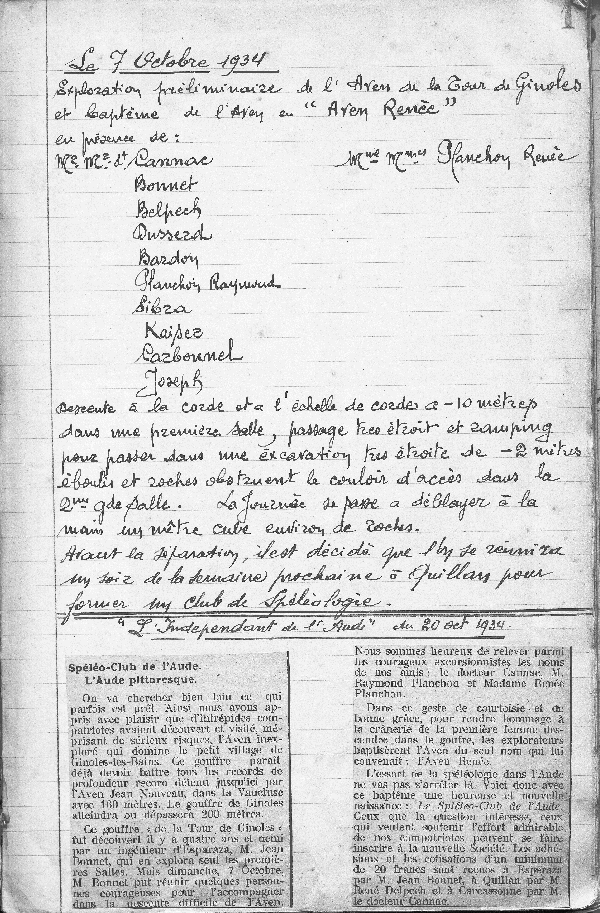 Le 7 Octobre 1934
Exploration préliminaire de l'Aven de la Tour de Ginoles
et baptême de l'Aven en "Aven Renée"
en présence de :
Cannac
Planchon Renée
Bonnet
Belpech
Dusserd
Bardon
Planchon Raymond
Sibra
Kaiser
Carbonnel
Joseph
Descente à la corde et a l'échelle de cordes a -10 mètres
dans une première salle, passage tres étroit et ramping
pour passer dans une excavation tres étroite de -2 mètres
éboulis et roches obstruent le couloir d'accès dans la
2eme gde salle. La Journée se passe a déblayer à la
main un mètre cube environ de roches.
Avant la séparation, il est décidé que l'on se réunira
un soir de la semaine prochaine à Quillan pour
former un Club de Spéléologie.
"L'Indépendant de l'Aude" du 20 oct 1934.
Spéléo-Club de l'Aude.
L'Aude pittoresque.
On va chercher bien loin ce qui
parfois est prêt. Ainsi nous avons ap-
pris avec plaisir que d'intrépides com-
patriotes avaient découvert et visité, mé-
prisant de sérieux risques, l'Aven inex-
ploré qui domine le petit village de
Ginoles-les-Bains. Ce gouffre paraît
déjà devoir battre tous les records de
profondeur record détenu jusqu'ici par
l'Aven Jean Nouveau, dans la Vaucluse
avec 160 mètres. Le gouffre de Ginoles
atteindra ou dépassera 200 mètres.
Ce gouffre « de la Tour de Ginoles »
fut découvert il y a quatre ans et demi
par un ingénieur d'Espéraza, M. Jean
Bonnet, qui en explora seul les premiè-
res Salles. Mais dimanche, 7 Octobre,
M. Bonnet put réunir quelques person-
nes courageuses pour l'accompagner
dans la descente difficile de l'Aven.
Nous sommes heureux de relever parmi
les courageux excursionnistes les noms
de nos amis : le docteur Cannac, M.
Raymond Planchon et Madame Renée
Planchon.
Dans ce geste de courtoisie et de
bonne grâce, pour rendre hommage à
la crânerie de la première femme des-
cendue dans le gouffre, les explorateurs
baptisèrent l'Aven du seul nom qui lui
convenait : l'Aven Renée.
L'essart de la spéléologie dans l'Aude
ne vas pas s'arrêter là. Voici donc avec
ce baptême une heureuse et nouvelle
naissance : Le Spéléo-Club de l'Aude
Ceux que la question intéresse, ceux
qui veulent soutenir l'effort admirable
de nos compatriotes peuvent se faire
inscrire à la nouvelle Société. Les adhé-
sions et les cotisations d'un minimum
de 20 francs sont reçues à Espéraza
par M. Jean Bonnet, à Quillan par M.
René Delpech et à Carcassonne par M.
le docteur Cannac.